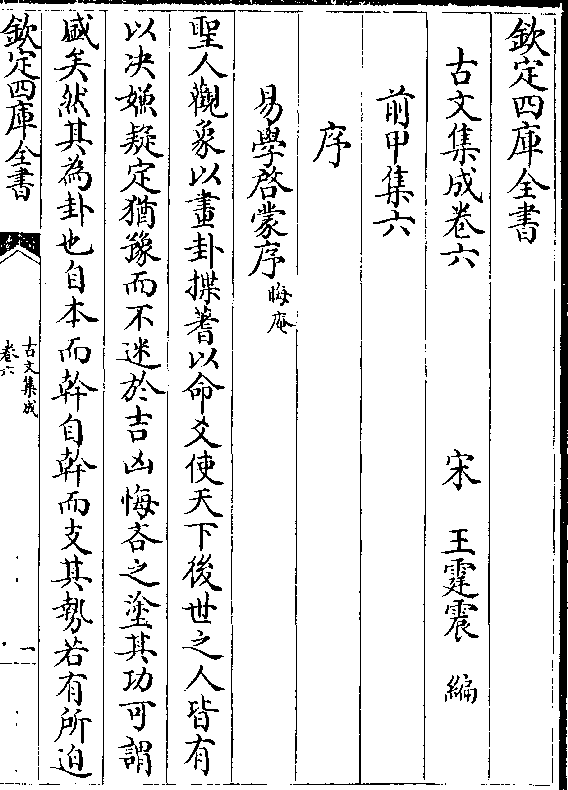 欽定四庫全書
古文集成卷六　宋　王霆震　編
前甲集六
序
易學啓蒙序晦庵
聖人觀象以畫卦揲蓍以命爻使天下後世之人皆有
以决嫌疑定猶豫而不迷於吉凶悔吝之塗其功可謂
盛矣然其為卦也自本而幹自幹而支其勢若有所迫
欽定四庫全書
古文集成
卷六
一